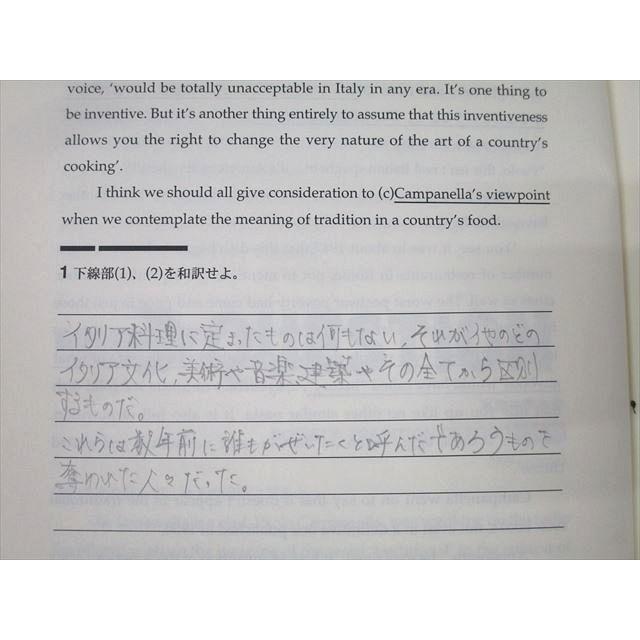 voice, ‘would be totally unacceptable in Italy in any era. It’s one thing to
be inventive. But it’s another thing entirely to assume that this inventiveness
allows you the right to change the very nature of the art of a country’s
cooking’.
I think we should all give consideration to (c)Campanella’s viewpoint
when we contemplate the meaning of tradition in a country’s food.
1 下線部(1)、(2)を和訳せよ。
イタリア料理に定まったものは何もない、それが他のどの
イタリア文化、美術や音楽、建築やその全てから区別
するものだ。
これらは数年前に誰もがぜいたくと呼んだであろうもので
奪われた人々だった。